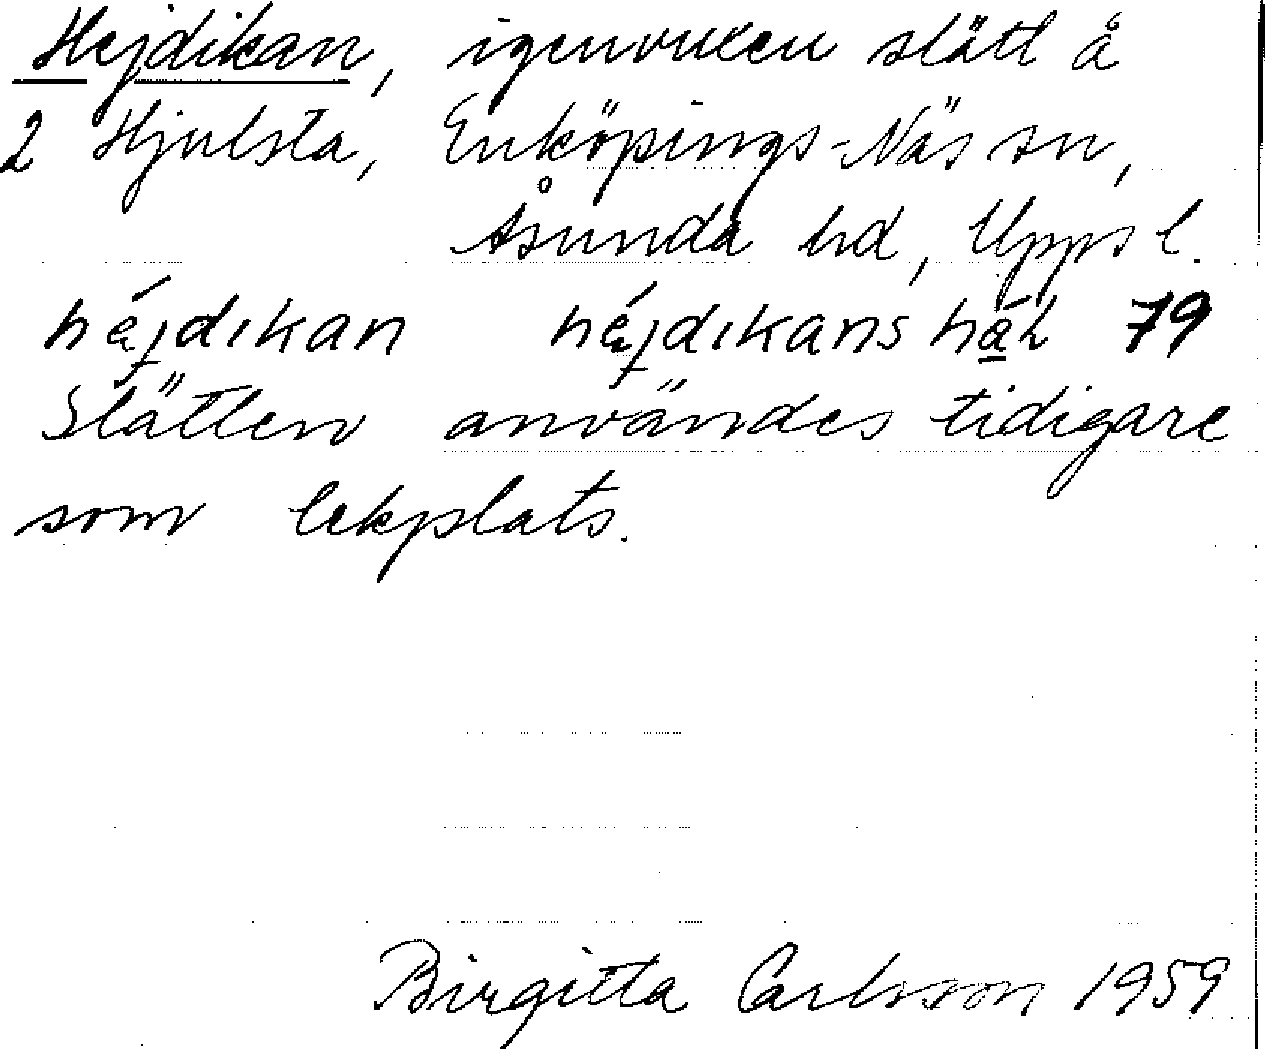 Hejdikan, igenvuxen slätt å
2 Hjulsta, Enköpings-Näs sn,
Åsunda hd, Uppsl.
héjdikan héjdikans hål 79
Slätten användes tidigare
som lekplats.
Birgitta Carlsson 1959